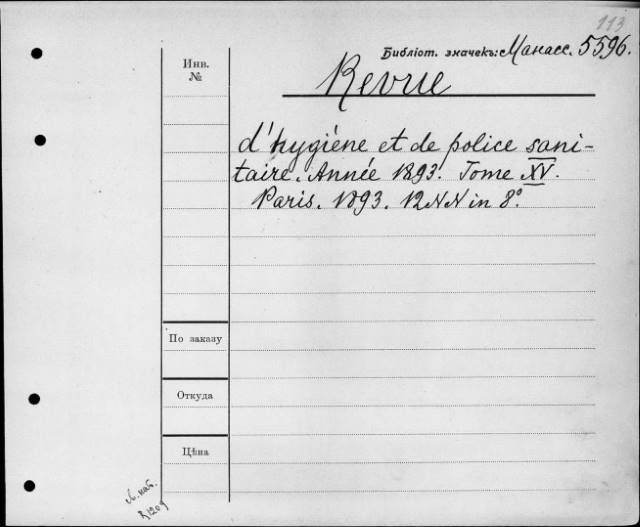 113
Библіот. значекъ: Манасс. 5596.
Инв. №
Revue
d'hygiène et de police sani-
taire. Année 1893. Tome XV.
Paris. 1893. 12 NN in 8°.
По заказу
Откуда
Цѣна